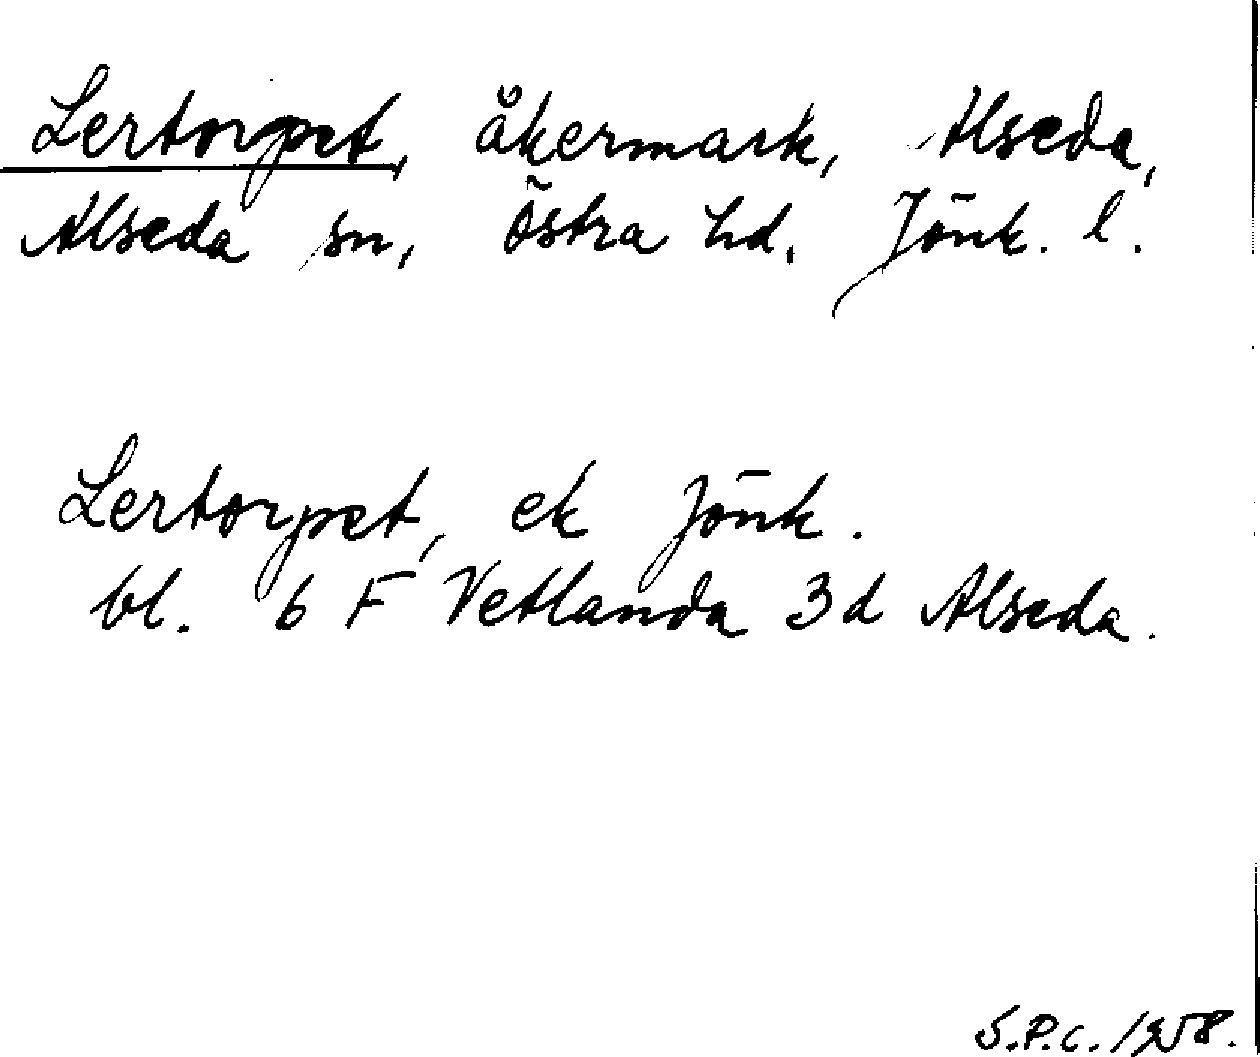 Lertorpet, åkermark, Alseda,
Alseda sn, Östra hd, Jönk. l.
Lertorpet, ek Jönk.
bl. 6 F Vetlanda 3d Alseda.
S.P.C. 1958.